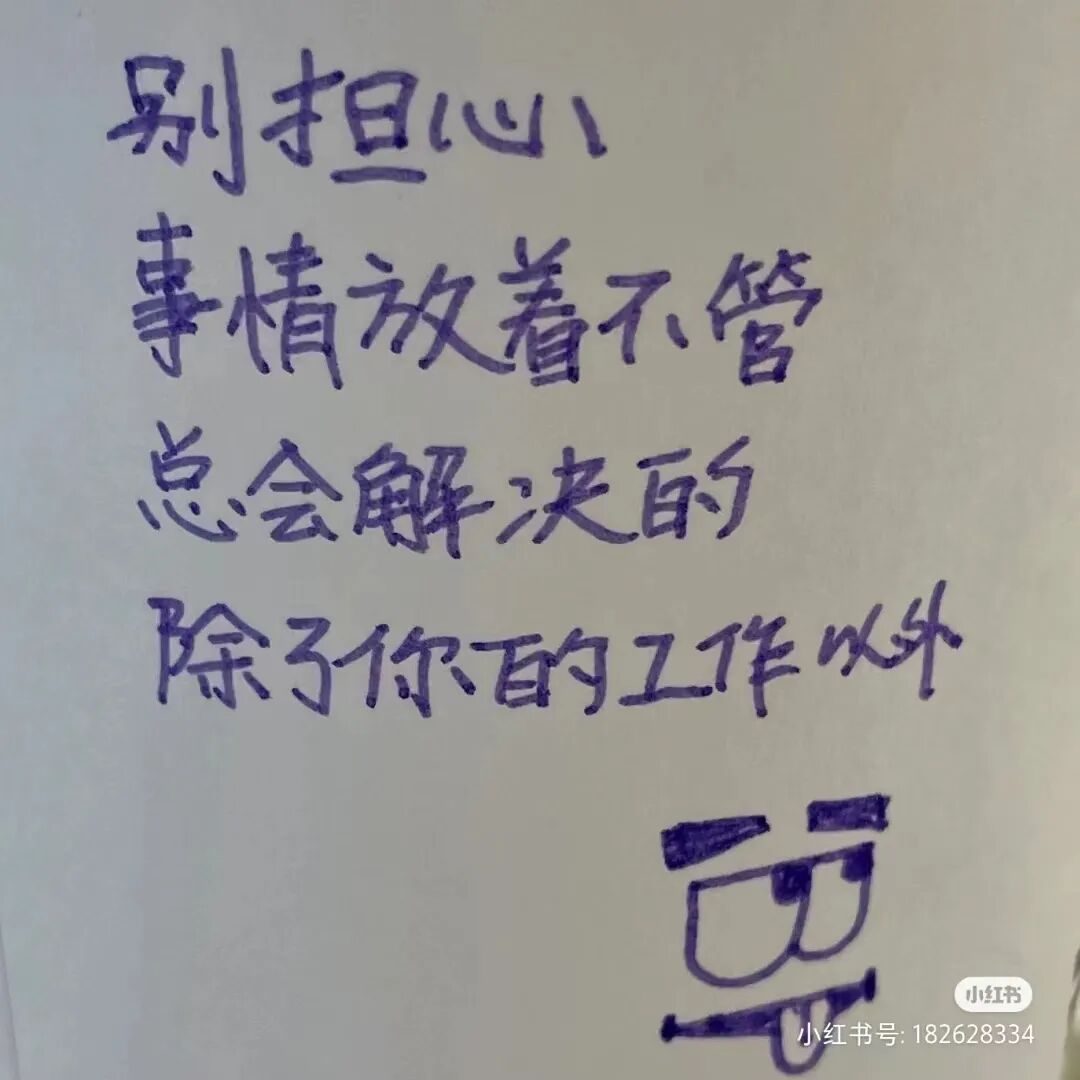 别担心、
事情放着不管
总会解决的
除了你的工作以外
小红书
小红书号: 182628334